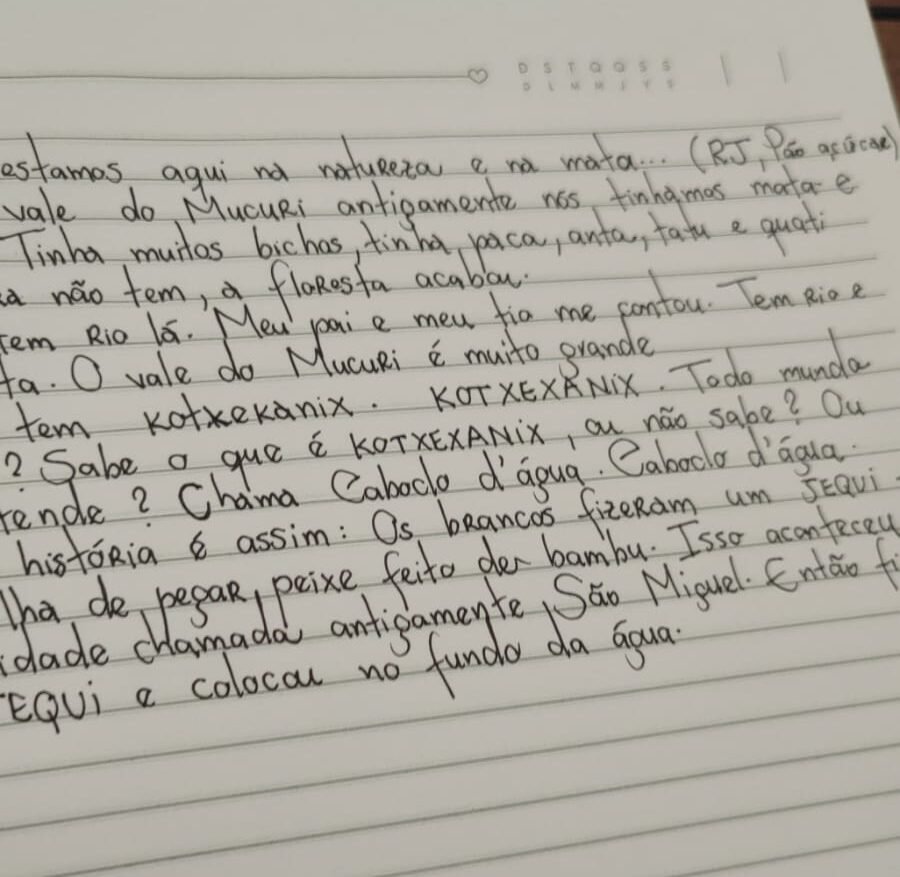 D S T Q Q S S
D L M M J V S
estamos aqui na natureza e na mata... (RJ, Pão açúcar)
vale do Mucuri antigamente nós tinhamos mata e
Tinha muitos bichos, tinha, paca, anta, tatu e quati
a não tem, a floresta acabou.
tem Rio lá. Meu pai e meu tia me contou. Tem Rio e
ta. O vale do Mucuri é muito grande
tem kotxekanix. KOTXEXANIX. Todo munda
? Sabe o que é KOTXEXANIX, ou não sabe? Ou
tende? Chama Caboclo d'água. Caboclo d'água.
história é assim: Os brancos fizeram um JEQUI -
lha de pegar peixe feito de bambu. Isso aconteceu
idade chamada antigamente São Miguel. Então fi
EQUI e colocou no fundo da água.